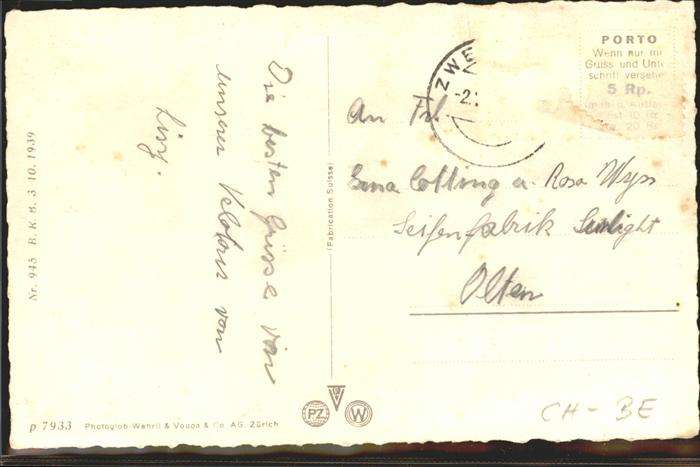 Nr. 945 B. K. B. 3 10. 1939
Die besten Grüsse von
unserer Velotour von
Lisy.
p 7933 Photoglob-Wehrli & Vouga & Co. AG. Zürich
(Fabrication Suisse)
PZ W
ZWE
-2.
PORTO
Wenn nur mi
Gruss und Unt
schrift versehe
5 Rp.
An Frl.
Cotting u. Rosa Wyss
Seifenfabrik Sunlight
Olten
CH - BE